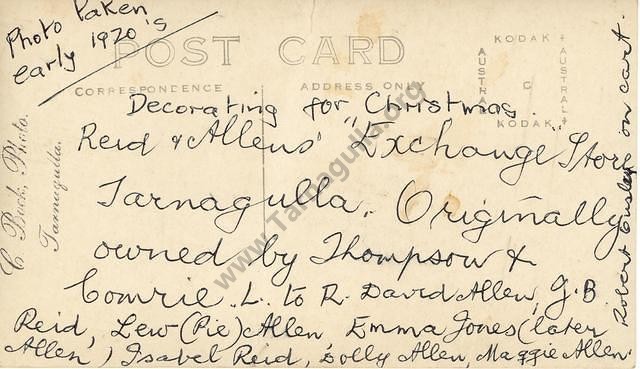 Photo taken
early 1920's
POST CARD
CORRESPONDENCE
ADDRESS ONLY
KODAK
AUSTRAL
AUSTRAL
KODAK
Decorating for Christmas.
Reid & Allens' "Exchange" Store
Tarnagulla. Originally
owned by Thompson &
Comrie. L. to R. David Allen, J.B.
Reid, Lew (Pie) Allen, Emma Jones (later
Allen) Isabel Reid, Dolly Allen, Maggie Allen.
Robert on cart.
C. Buck, Photo.
Tarnagulla.
www.Tarnagulla.org